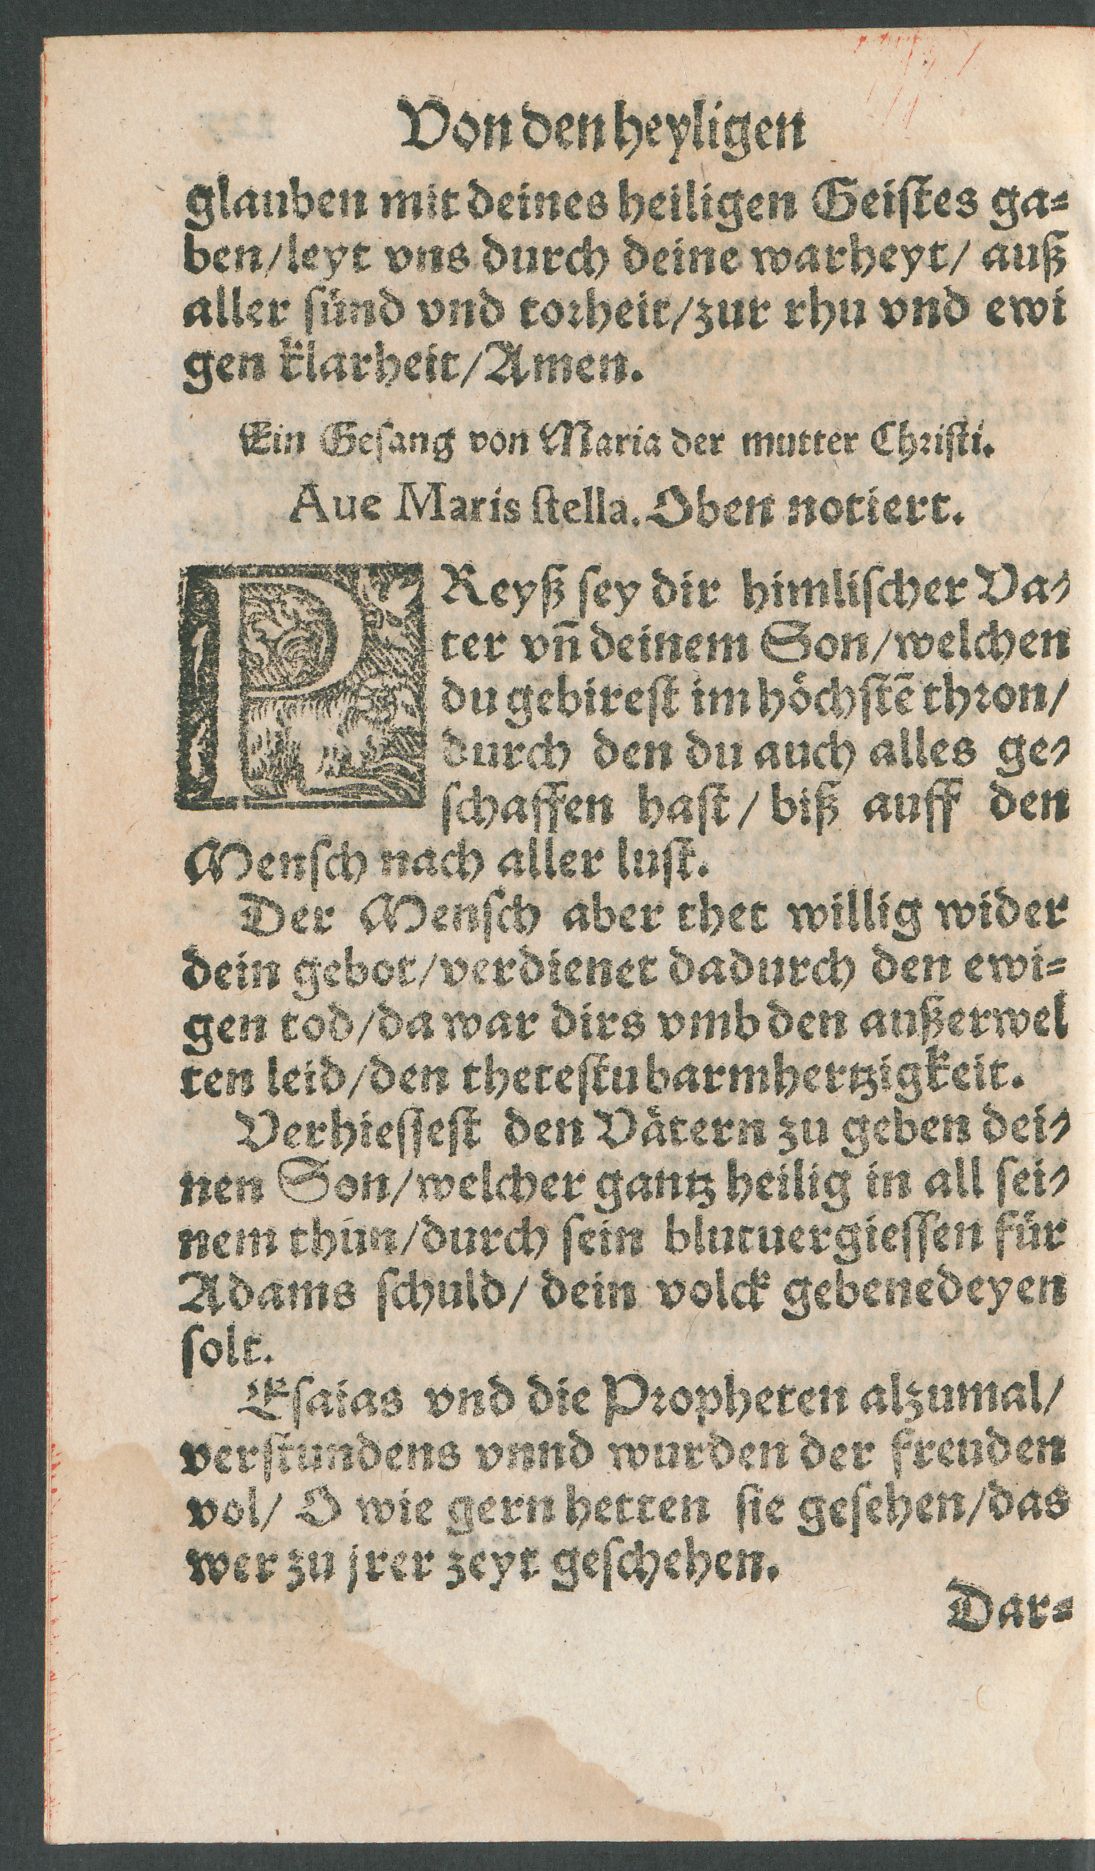 Von den heyligen
glauben mit deines heiligen Geistes ga-
ben/leyt vns durch deine warheyt/ auß
aller sünd vnd torheit/zur rhu vnd ewi
gen klarheit/Amen.
Ein Gesang von Maria der mutter Christi.
Aue Maris stella. Oben notiert.
PReyß sey dir himlischer Va-
ter vñ deinem Son/welchen
du gebirest im höchstẽ thron/
durch den du auch alles ge-
schaffen hast/ biß auff den
Mensch nach aller lust.
Der Mensch aber thet willig wider
dein gebot/verdienet dadurch den ewi-
gen tod/da war dirs vmb den außerwel
ten leid/den thetestu barmhertzigkeit.
Verhiessest den Vätern zu geben dei-
nen Son/welcher gantz heilig in all sei-
nem thun/durch sein blutuergiessen für
Adams schuld/ dein volck gebenedeyen
solt.
Esaias vnd die Propheten alzumal/
verstundens vnnd wurden der freuden
vol/ O wie gern hetten sie gesehen/das
wer zu jrer zeyt geschehen.
Dar-